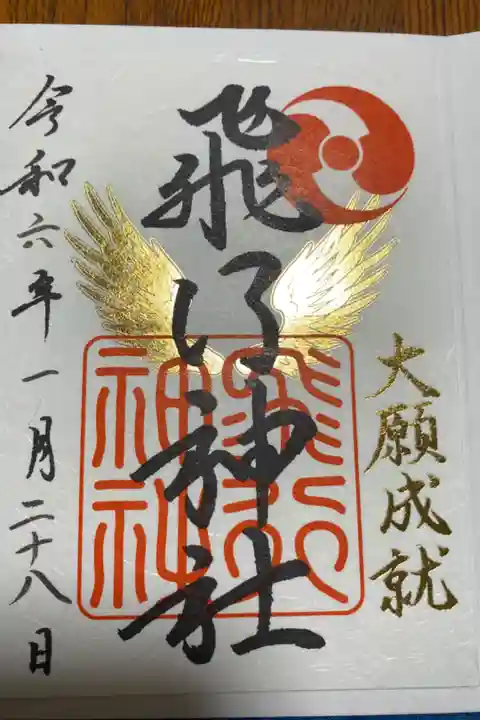 大願成就
飛行神社
飛行神社
令和六年一月二十八日